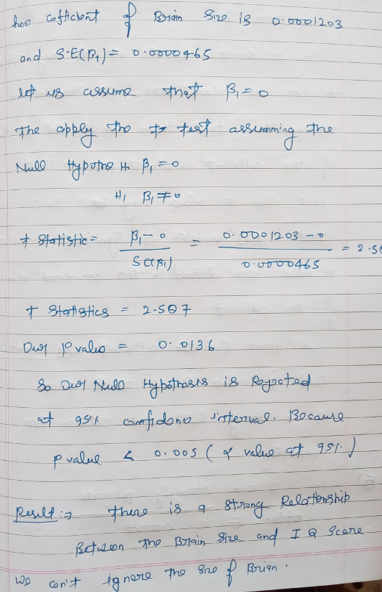 has cofficient of Brain Size is 0.0001203
and S.E(β₁) = 0.0000465
let us assume that β₁ = 0
The apply the t test assumming the
Null Hypothe H. β₁ = 0
H₁ β₁ ≠ 0
t statistic = β₁ - 0 / SE(β₁) = 0.0001203 - 0 / 0.0000465 = 2.5
t Statistics = 2.587
Our p value = 0.0136
So Our Null Hypothesis is Rejected
at 95% confidene interval. Because
p value < 0.005 (α value at 95%.)
Result :→ There is a strong Relationship
Between The Brain Size and I Q Score
We can't ignore the Size of Brian.